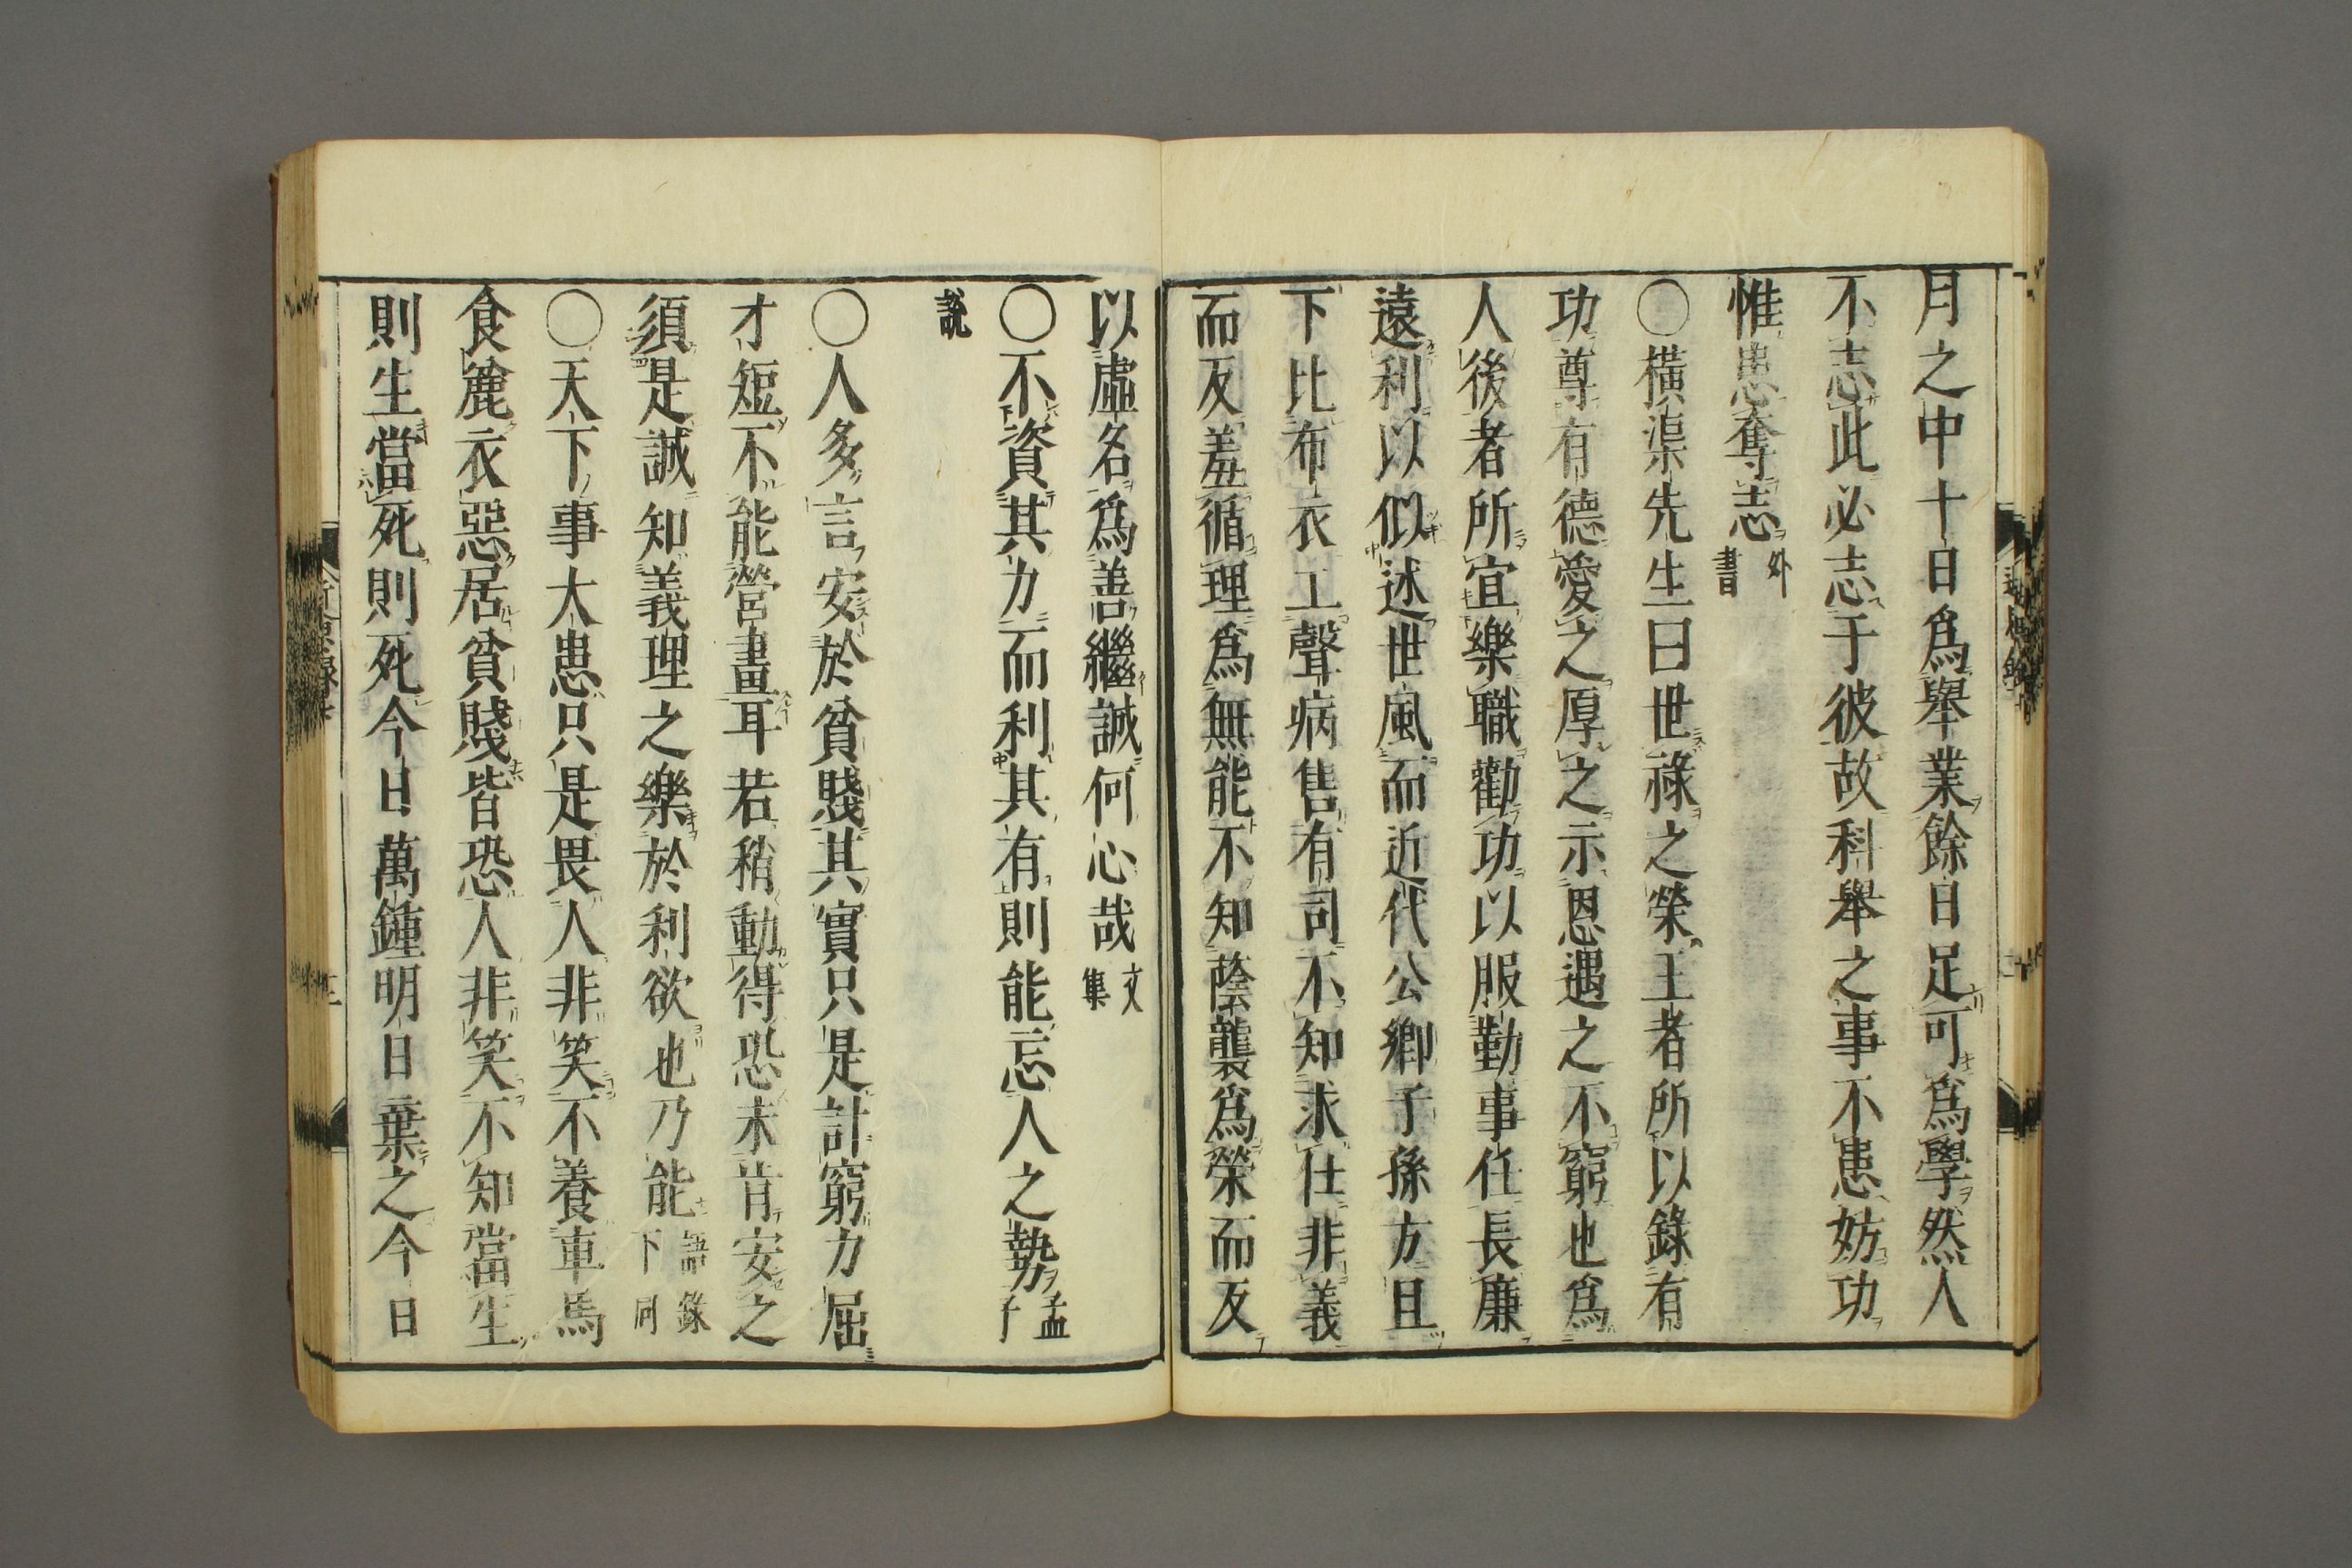 月之中十日爲舉業餘日足可爲學然人
不志此必志于彼故科舉之事不患妨功
惟患奪志外書
〇橫渠先生曰世祿之榮王者所以錄有
功尊有德愛之厚之示恩遇之不窮也爲
人後者所宜樂職勸功以服勤事任長廉
遠利以似述世風而近代公卿子孫方且
下比布衣工聲病售有司不知求仕非義
而反羞循理爲無能不知蔭襲爲榮而反
以虛名爲善繼誠何心哉文集
〇不資其力而利其有則能忘人之勢孟子
說
〇人多言安於貧賤其實只是計窮力屈
才短不能營畫耳若稍動得恐未肯安之
須是誠知義理之樂於利欲也乃能語錄下同
〇天下事大患只是畏人非笑不養車馬
食麄衣惡居貧賤皆恐人非笑不知當生
則生當死則死今日萬鍾明日棄之今日